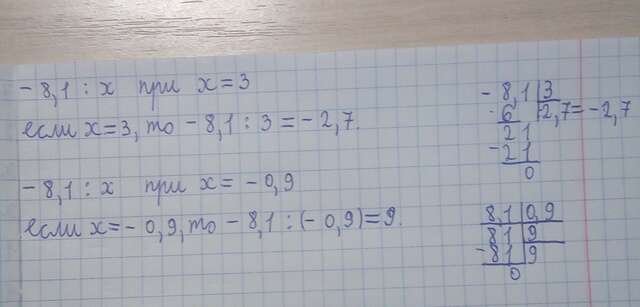 -8,1 : x при x=3
если x=3, то -8,1 : 3 = -2,7.
-8,1 : x при x= -0,9
если x=-0,9, то -8,1 : (-0,9)=9.
- 8,1 | 3
6 | 2,7 = -2,7
21
- 21
0
8,1 | 0,9
81 | 9
- 81 | 9
0